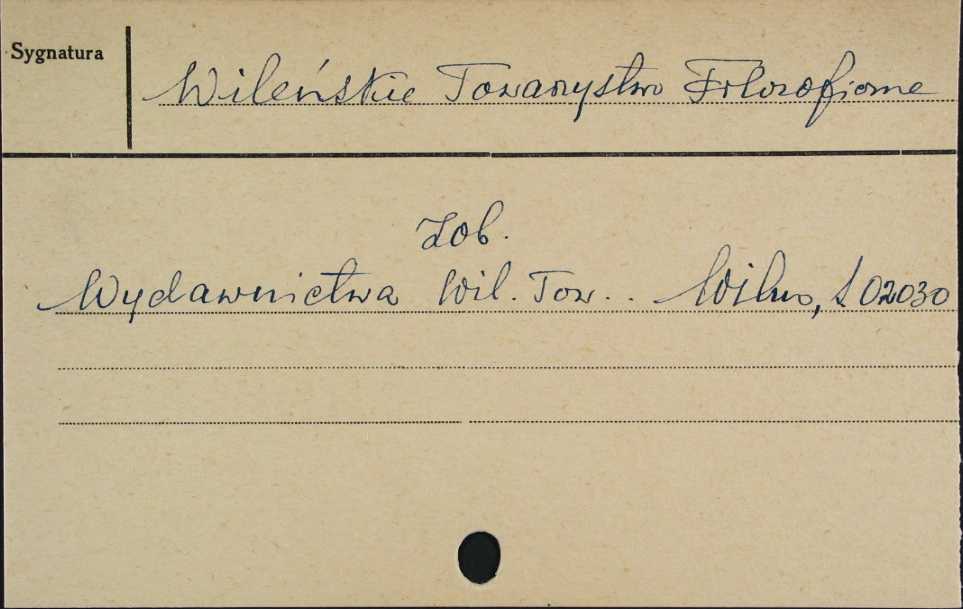 Sygnatura
Wileńskie Towarzystwo Filozoficzne
Zob.
Wydawnictwa Wil. Tow... Wilno, S 02030